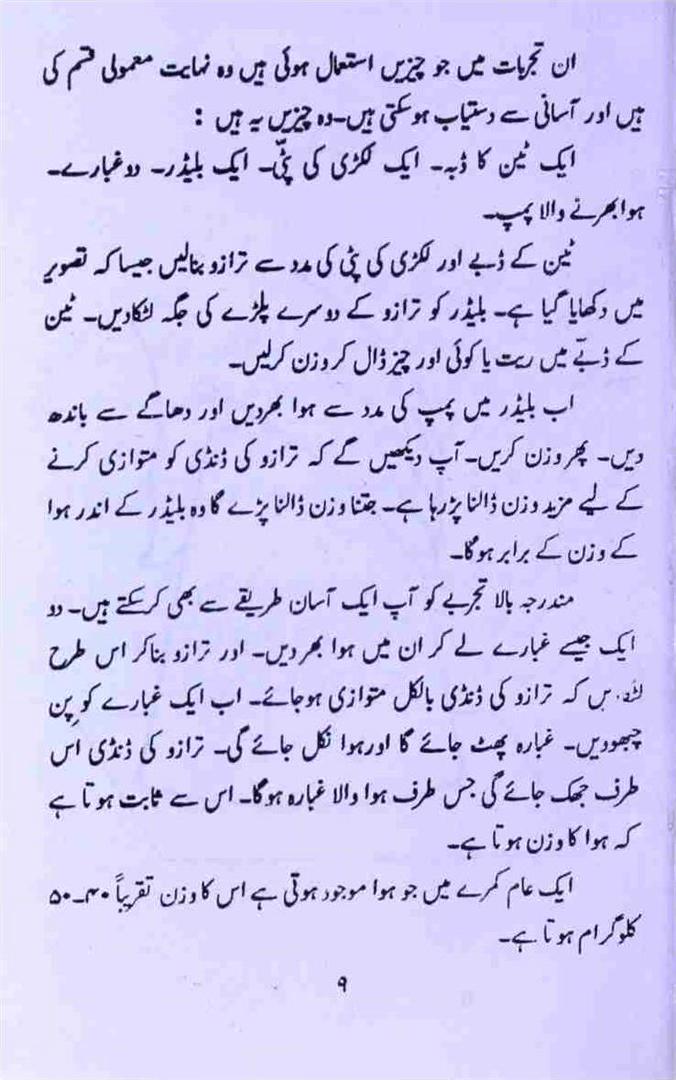 ان تجربات میں جو چیزیں استعمال ہوئی ہیں وہ نہایت معمولی قسم کی
ہیں اور آسانی سے دستیاب ہوسکتی ہیں۔ وہ چیزیں یہ ہیں :
ایک ٹین کا ڈبہ۔ ایک لکڑی کی پٹّی۔ ایک بلیڈر۔ دو غبارے۔
ہوا بھرنے والا پمپ۔
ٹین کے ڈبے اور لکڑی کی پٹی کی مدد سے ترازو بنالیں جیسا کہ تصویر
میں دکھایا گیا ہے۔ بلیڈر کو ترازو کے دوسرے پلڑے کی جگہ لٹکادیں۔ ٹین
کے ڈبّے میں ریت یا کوئی اور چیز ڈال کر وزن کرلیں۔
اب بلیڈر میں پمپ کی مدد سے ہوا بھردیں اور دھاگے سے باندھ
دیں۔ پھر وزن کریں۔ آپ دیکھیں گے کہ ترازو کی ڈنڈی کو متوازی کرنے
کے لیے مزید وزن ڈالنا پڑرہا ہے۔ جتنا وزن ڈالنا پڑے گا وہ بلیڈر کے اندر ہوا
کے وزن کے برابر ہوگا۔
مندرجہ بالا تجربے کو آپ ایک آسان طریقے سے بھی کرسکتے ہیں۔ دو
ایک جیسے غبارے لے کر ان میں ہوا بھردیں۔ اور ترازو بناکر اس طرح
کہ ترازو کی ڈنڈی بالکل متوازی ہوجائے۔ اب ایک غبارے کو پِن
چبھودیں۔ غبارہ پھٹ جائے گا اورہوا نکل جائے گی۔ ترازو کی ڈنڈی اس
طرف جھک جائے گی جس طرف ہوا والا غبارہ ہوگا۔ اس سے ثابت ہوتا ہے
کہ ہوا کا وزن ہوتا ہے۔
ایک عام کمرے میں جو ہوا موجود ہوتی ہے اس کا وزن تقریباً ۴۰۔۵۰
کلوگرام ہوتا ہے۔
۹